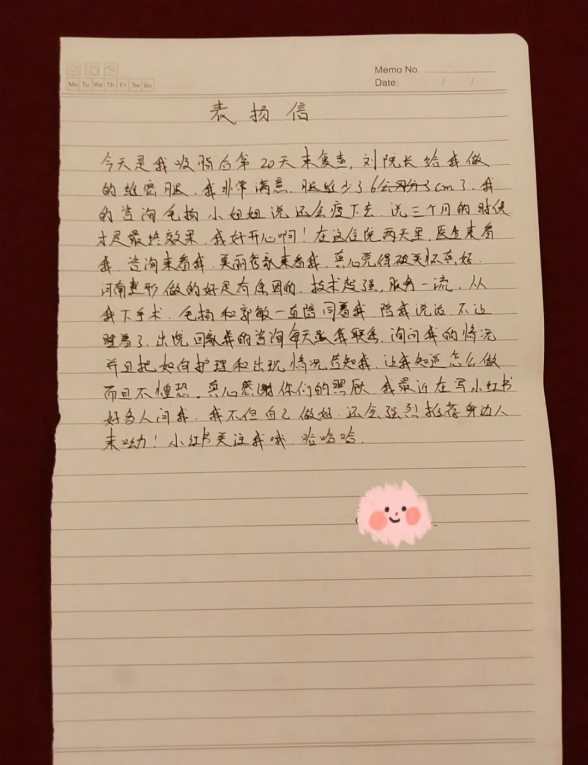 Mo Tu We Th Fr Sa Su
Memo No.
Date: / /
表扬信
今天是我吸脂后第20天来复查,刘院长给我做
的维密腿,我非常满意,腿维少了6公分了cm了,我
的咨询毛扬小姐姐说还会瘦下去,说三个月的时候
才是最终效果,我好开心啊!在这住院两天里,医生来看
我,咨询来看我,美丽告歌来看我,真心觉得被关怀真好
河南整形做的好是有原因的,技术超强,服务一流,从
我下手术,毛扬和郭敏一直陪同着我,陪我说话,不让
我睡着了,出院回家我的咨询每天跟我联系,询问我的情况
并且把如何护理和出现情况告知我,让我知道怎么做
而且不惶恐,真心感谢你们的照顾,我最近在写小红书
好多人问我,我不但自己做好,还会强烈推荐身边人
来呦!小红书关注我哦 哈哈哈